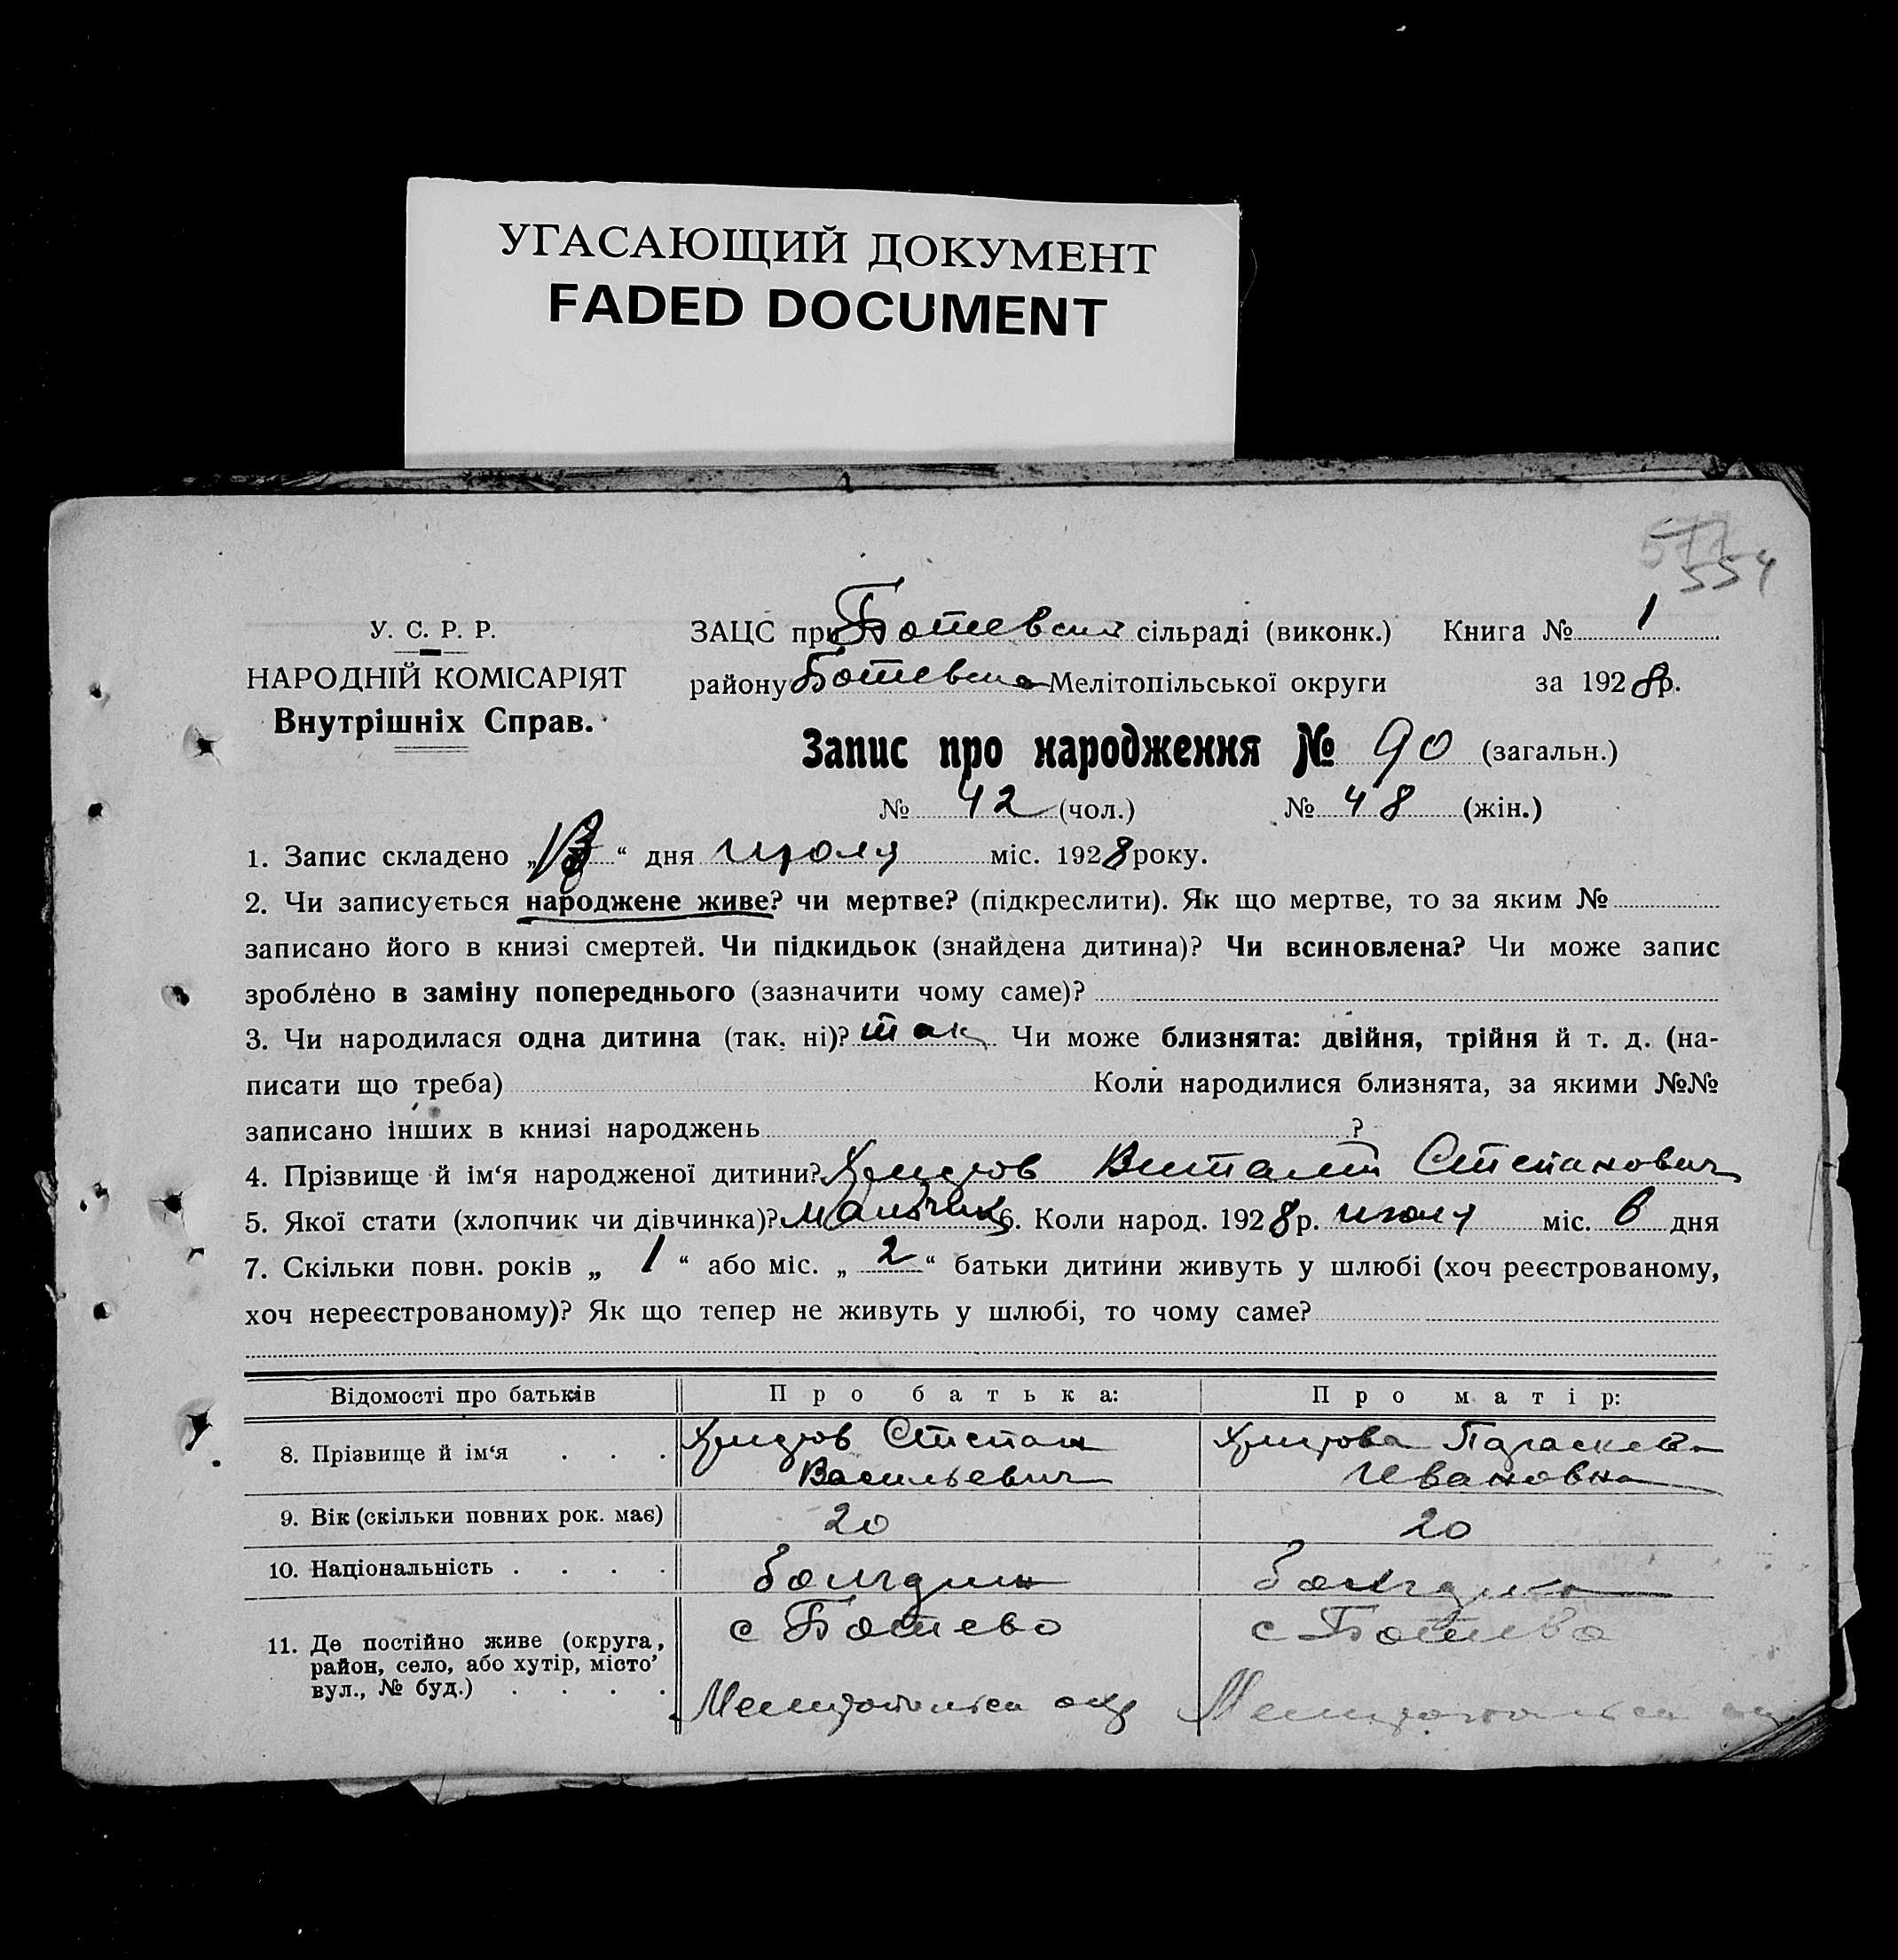 УГАСАЮЩИЙ ДОКУМЕНТ
FADED DOCUMENT
554
У. С. Р. Р.
НАРОДНІЙ КОМІСАРІЯТ
Внутрішніх Справ.
ЗАЦС при Ботевский сільраді (виконк.) Книга № 1
району Ботевска Мелітопільської округи за 1928 р.
Запис про народження № 90 (загальн.)
№ 42 (чол.) № 48 (жін.)
1. Запис складено „ “ дня июля міс. 1928 року.
2. Чи записується народжене живе? чи мертве? (підкреслити). Як що мертве, то за яким №
записано його в книзі смертей. Чи підкидьок (знайдена дитина)? Чи всиновлена? Чи може запис
зроблено в заміну попереднього (зазначити чому саме)?
3. Чи народилася одна дитина (так, ні)? так Чи може близнята: двійня, трійня й т. д. (на-
писати що треба) Коли народилися близнята, за якими №№
записано інших в книзі народжень ?
4. Прізвище й ім‘я народженої дитини? Виталий Степанович
5. Якої стати (хлопчик чи дівчинка)? мальчик 6. Коли народ. 1928 р. июля міс. 6 дня
7. Скільки повн. років „ 1 “ або міс. „ 2 “ батьки дитини живуть у шлюбі (хоч реєстрованому,
хоч нереєстрованому)? Як що тепер не живуть у шлюбі, то чому саме?
Відомості про батьків Про батька: Про матір:
8. Прізвище й ім‘я . . . Степан Параскева
Васильевич Ивановна
9. Вік (скільки повних рок. має) 20 20
10. Національність . . . . болгарин болгарка
11. Де постійно живе (округа, район, село, або хутір, місто’ вул., № буд.) . . . . с Ботево с Ботево
Мелитопольск окр Мелитопольск